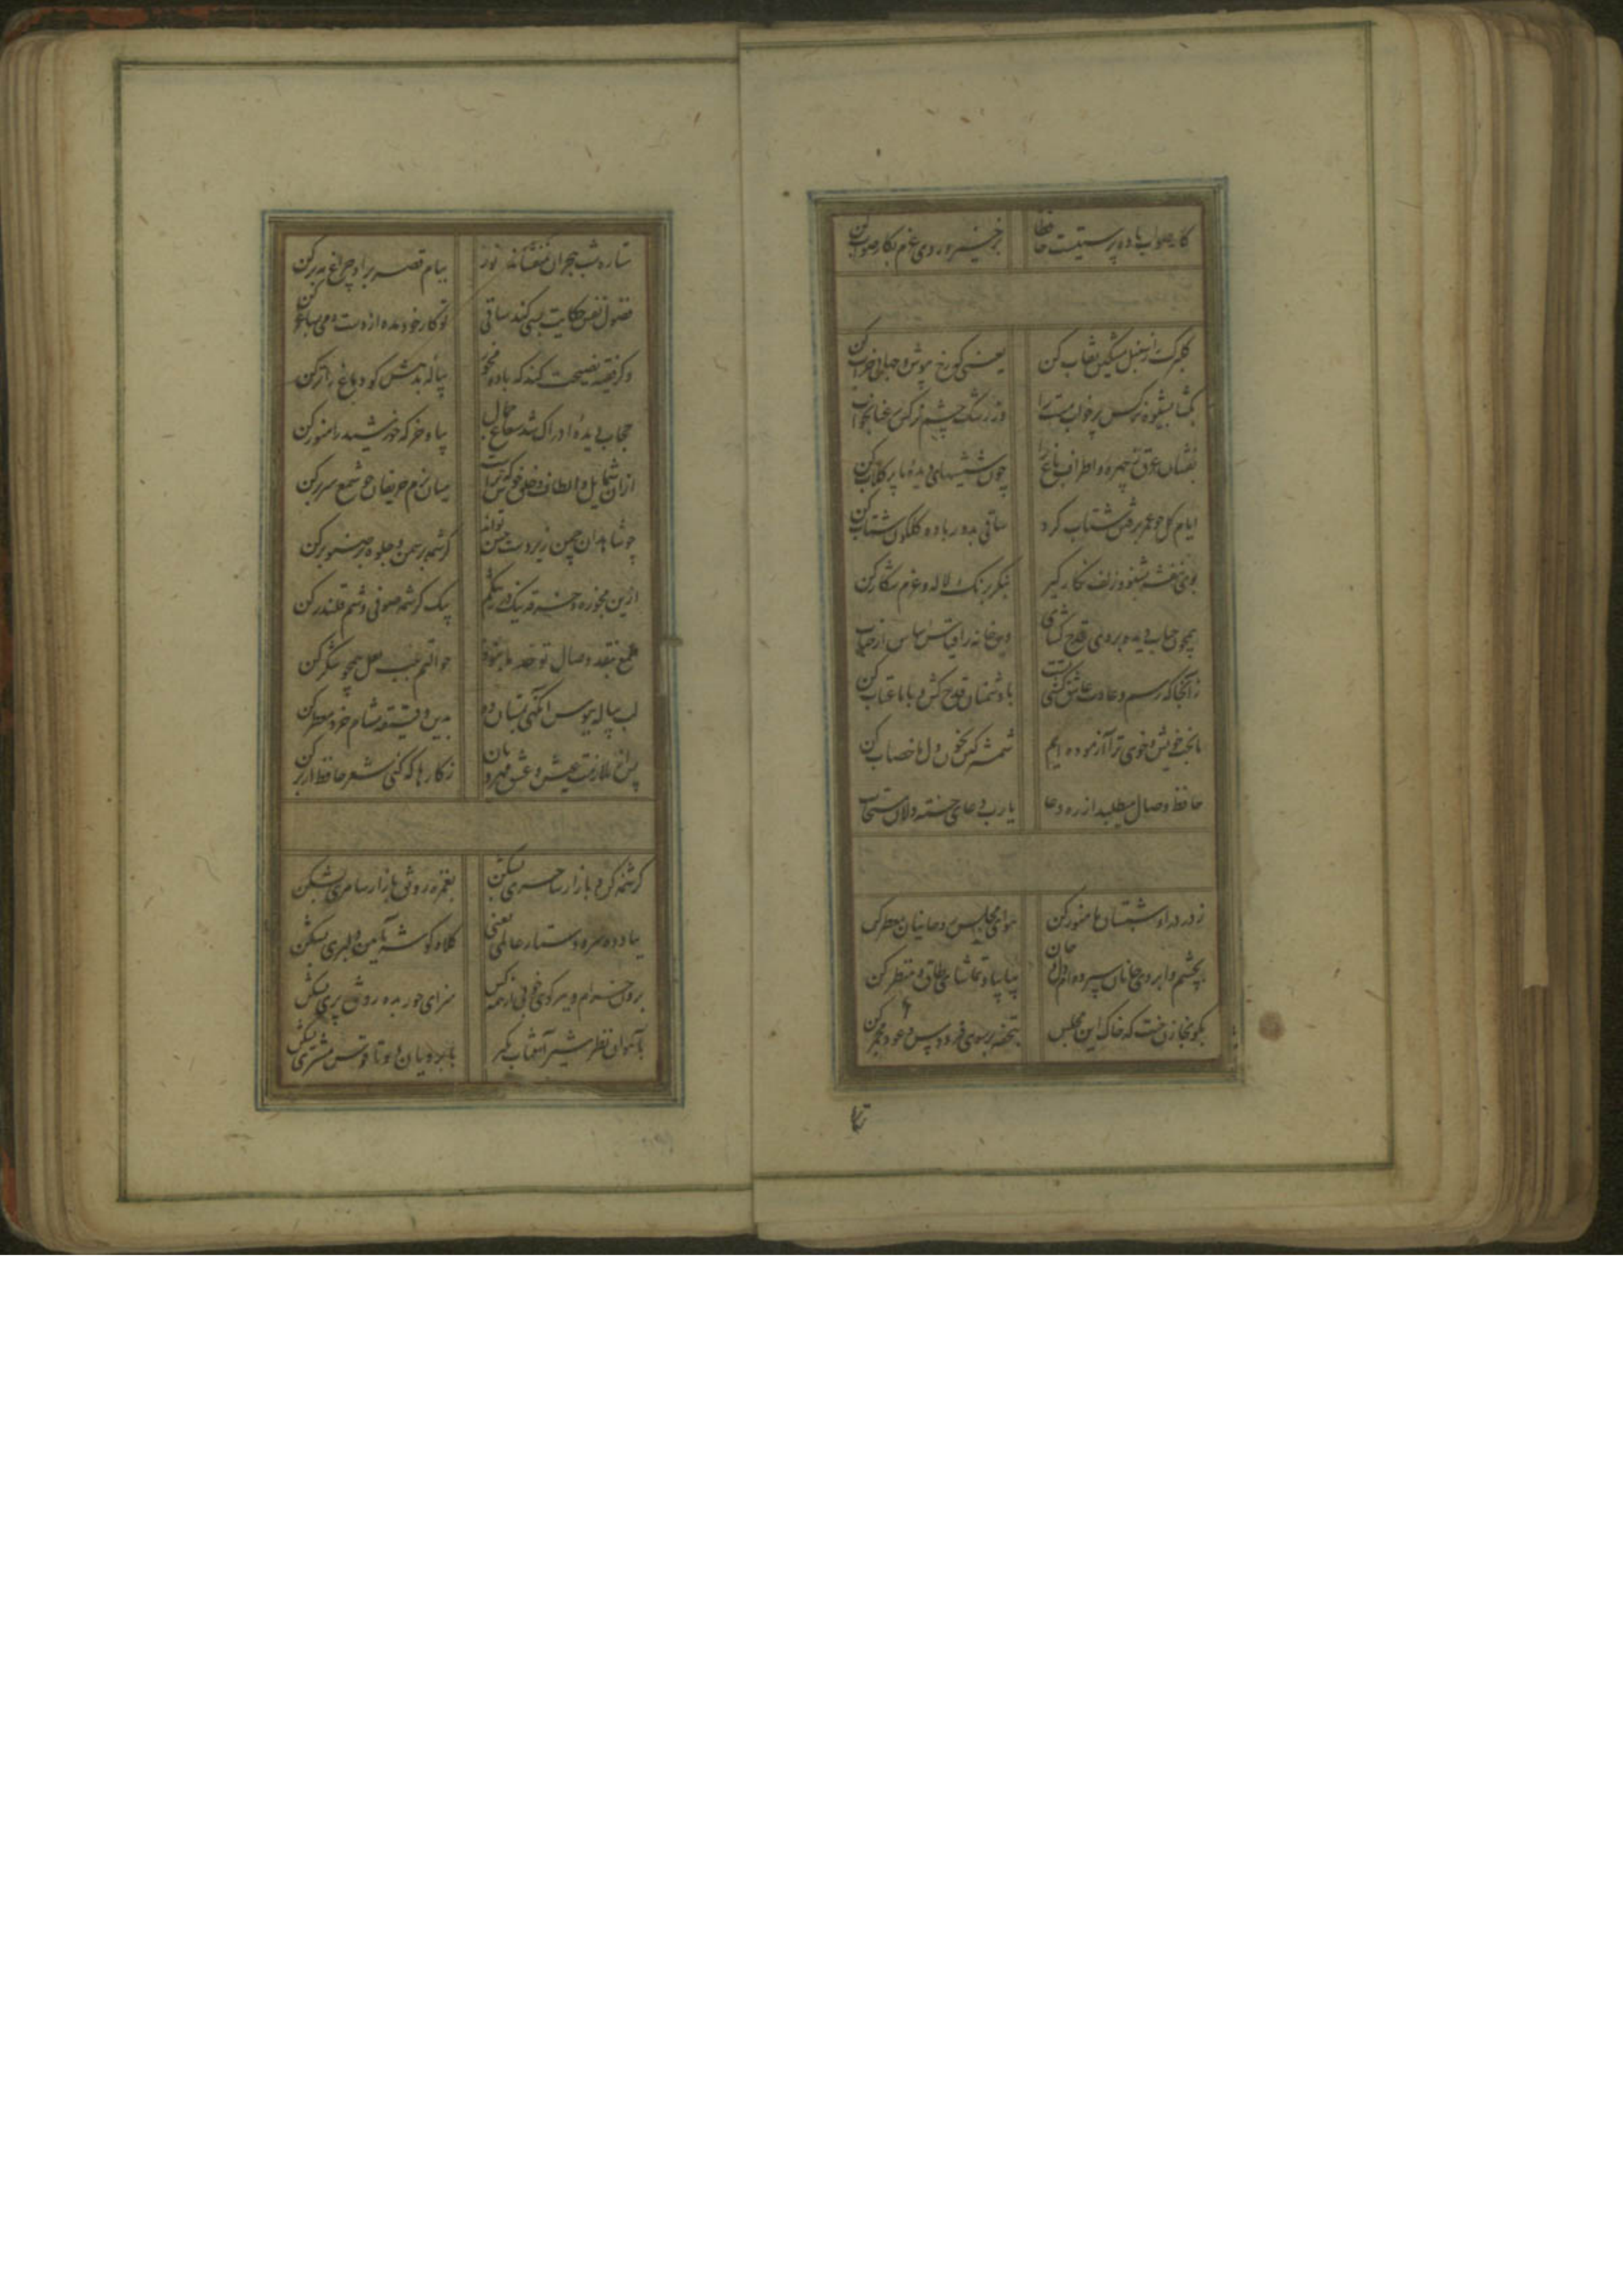 کار صواب باده پرستیست حافظا برخیز و روی عزم بکار صواب کن
گلبرک را ز سنبل مشکین نقاب کن یعنی که رخ بپوش و جهانی خراب کن
بکشا بشیوه نرکس پر خواب مست را وز رشک چشم نرکس رعنا بخواب کن
بفشان عرق ز چهره و اطراف باغ را چون شیشهای دیده ما پر کلاب کن
ایام کل چو عمر برفتن شتاب کرد ساقی بدور باده کلکون شتاب کن
بوی بنفشه بشنو و زلف نکار کیر بنکر برنک لاله و عزم شکار کن
همچون حباب دیده بروی قدح کشای وین خانه را قیاس اساس از حباب
زآنجا که رسم و عادت عاشق کشی تست با دشمنان قدح کش و با ما عتاب کن
ما بخت خویش و خوی ترا آزموده ایم
حافظ وصال میطلبد از ره دعا یا رب دعای خسته دلان مستجاب
ز در درا و شبستان ما منور کن هوای مجلس روحانیان معطر کن
بچشم و ابروی جانان سپرده ام دل و جان بیا بیا و تماشای طاق و منظر کن
بکو بخازن جنت که خاک این مجلس بتحفه بر سوی فردوس و عود مجمر کن
ستا
ستاره شب هجران نمیفشاند نور ببام قصر برا و چراغ مه بر کن
فضول نفس حکایت بسی کند ساقی تو کار خود مده از دست و می بساغر کن
وکر فقیه نصیحت کند که باده مخور پیاله بدهش کو دماغ را تر کن
حجاب دیده ادراک شد شعاع جمال بیا و خرکه خورشید را منور کن
ازان شمایل و الطاف و خلق خوش که تراست میان بزم حریفان چو شمع سر بر کن
چو شاهدان چمن زیردست حسن تواند کرشمه بر سمن و جلوه بر صنوبر کن
ازین مزوره و خرقه نیک در تنکم بیک کرشمه صوفی وشم قلندر کن
طمع بنقد وصال تو حد ما نبود حوالتم بلب لعل همچو شکر کن
لب پیاله ببوس آنکهی بمستان ده بدین دقیقه مشام خرد معطر کن
پس از ملازمت عیش و عشق مهرویان ز کارها که کنی شعر حافظ از بر کن
کرشمه کن و بازار ساحری بشکن بغمزه رونق بازار سامری بشکن
بباد ده سر و دستار عالمی یعنی کلاه کوشه بآیین دلبری بشکن
برون خرام و ببر کوی خوبی از همه کس سزای حور بده رونق پری بشکن
بآهوان نظر شیر آفتاب بکیر بابروان دوتا قوس مشتری بشکن